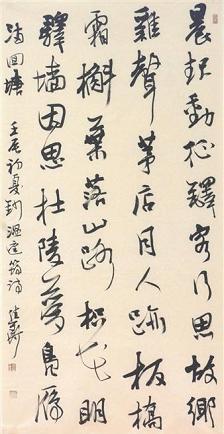 晨起動征鐸客行思故鄉
雞聲茅店月人跡板橋
霜槲葉落山路枳花明
驛墻因思杜陵夢鳧雁
滿回塘 壬辰初夏錄溫庭筠詩